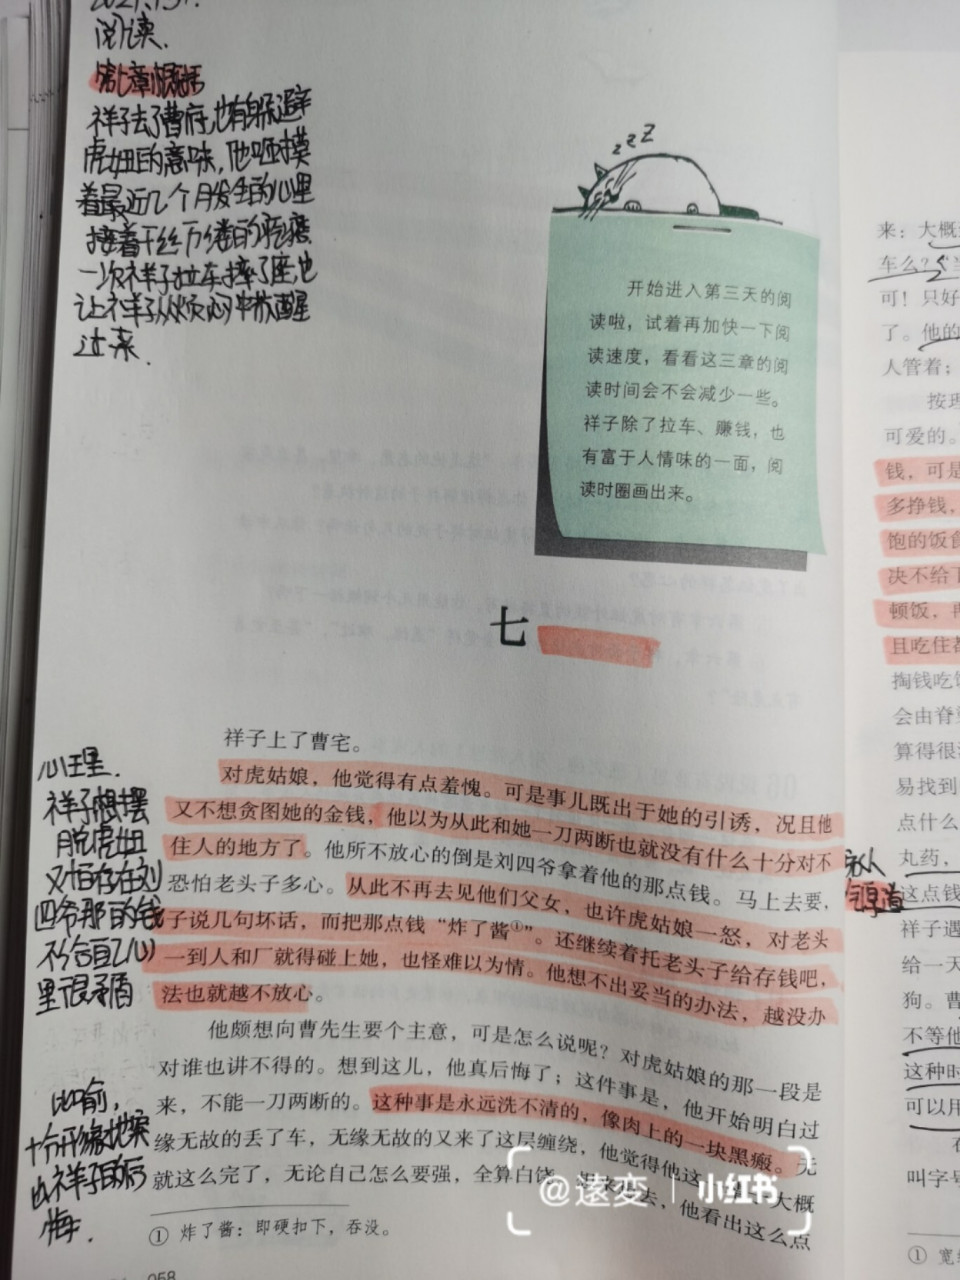 阅读.
第七章概括
祥子去了曹府,也有躲避
虎妞的意味,他咂摸
着最近几个月发生的心里
一次祥子拉车摔了座,也
让祥子从烦闷中
过来.
zzZ
开始进入第三天的阅
读啦，试着再加快一下阅
读速度，看看这三章的阅
读时间会不会减少一些。
祥子除了拉车、赚钱，也
有富于人情味的一面，阅
读时圈画出来。
七
祥子上了曹宅。
对虎姑娘，他觉得有点羞愧。可是事儿既出于她的引诱，况且他
又不想贪图她的金钱，他以为从此和她一刀两断也就没有什么十分对不
住人的地方了。他所不放心的倒是刘四爷拿着他的那点钱。马上去要，
恐怕老头子多心。从此不再去见他们父女，也许虎姑娘一怒，对老头
子说几句坏话，而把那点钱“炸了酱①”。还继续着托老头子给存钱吧，
一到人和厂就得碰上她，也怪难以为情。他想不出妥当的办法，越没办
法也就越不放心。
他颇想向曹先生要个主意，可是怎么说呢？对虎姑娘的那一段是
对谁也讲不得的。想到这儿，他真后悔了；这件事是，他开始明白过
来，不能一刀两断的。这种事是永远洗不清的，像肉上的一块黑瘢。无
缘无故的丢了车，无缘无故的又来了这层缠绕，他觉得他这
大概
就这么完了，无论自己怎么要强，全算白饶。
去，他看出这么点
① 炸了酱：即硬扣下，吞没。
058
心里.
祥子想摆
脱虎妞
又怕存在刘
四爷那的钱
不给自己心
里很矛盾
比喻,
十分形象地
出祥子的后
悔.
@遠変 | 小红书
来：大概
车么？“当
可！只好
了。他的
人管着；
按理
可爱的。
钱，可是
多挣钱，
饱的饭食
决不给
顿饭，再
且吃住都
掏钱吃饭
会由脊
算得很
易找到
点什么
丸药，
这点钱
祥子遇
给一天
狗。曹
不等他
这种时
可以用
在
叫字号
① 宽